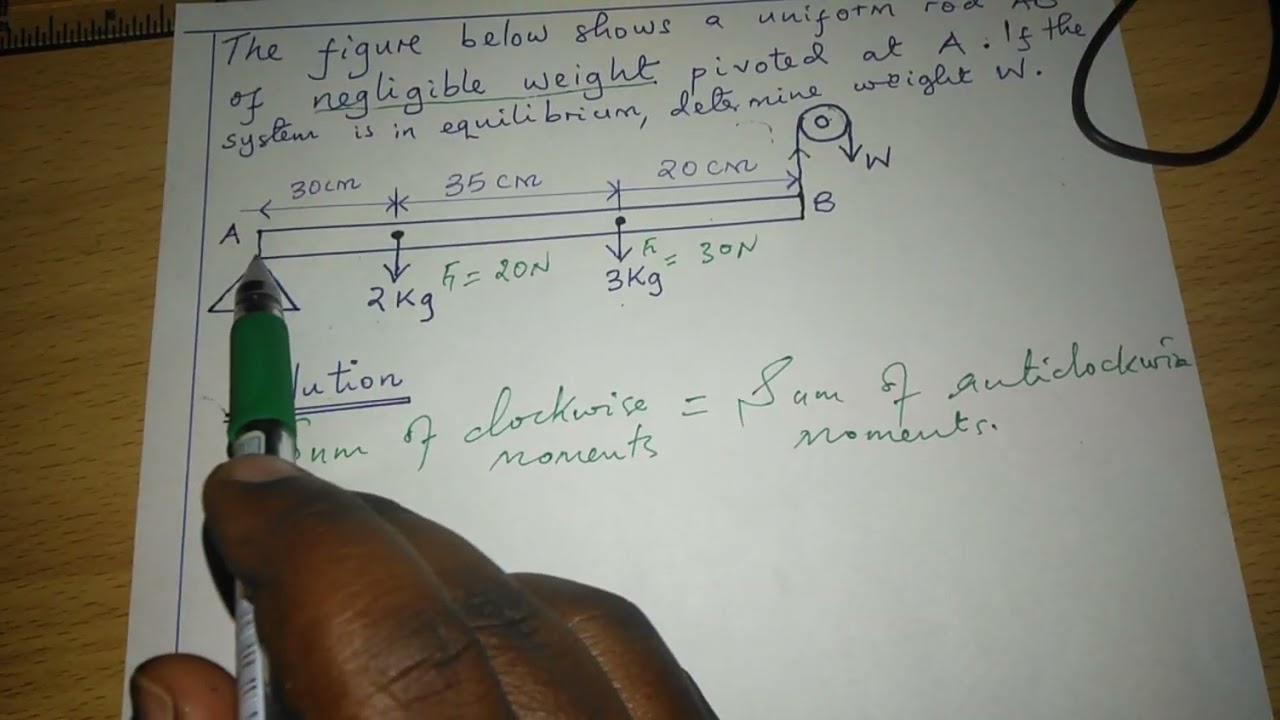 The figure below shows a uniform rod
of negligible weight pivoted at A. If the
system is in equilibrium, determine weight W.
30cm 35 cm 20 cm
W
A B
F₁ = 20N F₂ = 30N
2 Kg 3 Kg
lution
Sum of clockwise moments = Sum of anticlockwise moments.